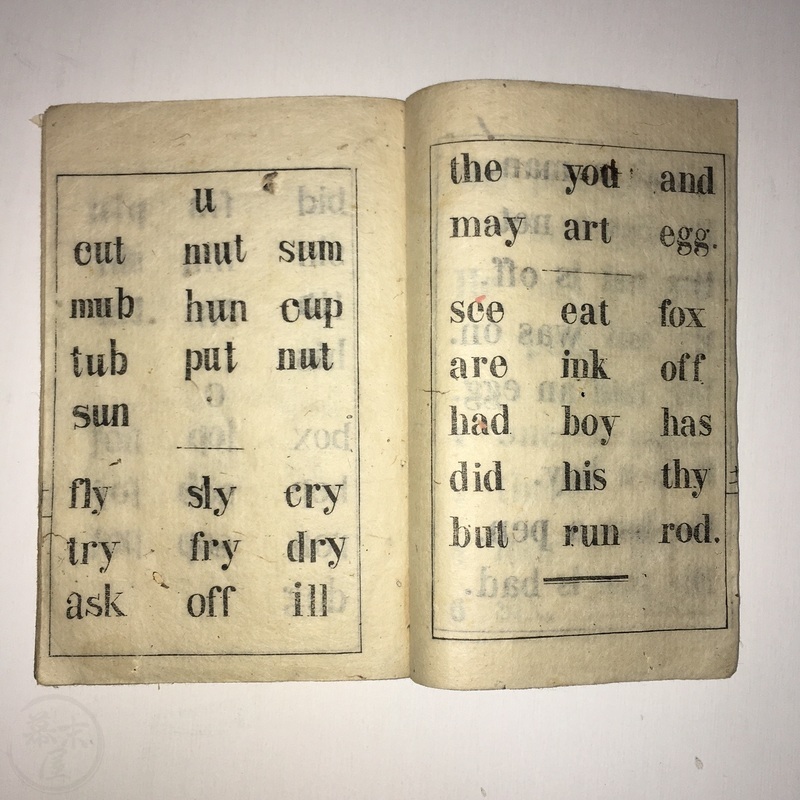 u
cut mut sum
mub hun cup
tub put nut
sun
fly sly cry
try fry dry
ask off ill
the you and
may art egg.
see eat fox
are ink off
had boy has
did his thy
but run rod.